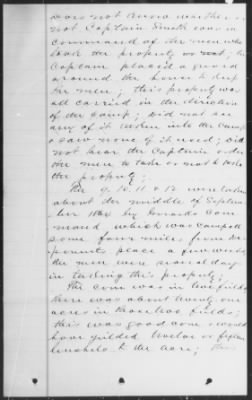 does not know whether or
not Captain Smith was in
command of the men who
took the property or not; the
Captain placed a guard
around the house to keep
his men; this property was
all carried in the direction
of the camp; did not see
any of it taken into the camp
& saw none of it used; did
not hear the Captain order
the men to take or not to take
the property;
The 9, 10, 11 & 12 were taken
about the middle of Septem
ber 1864 by command
which was camped
some four miles from
place a few weeks
the men were several days
in taking this property;
The corn was in two fields
there was about twenty one
acres in those two fields;
this was good corn & would
have yielded twelve or fifteen
bushels to the acre; this